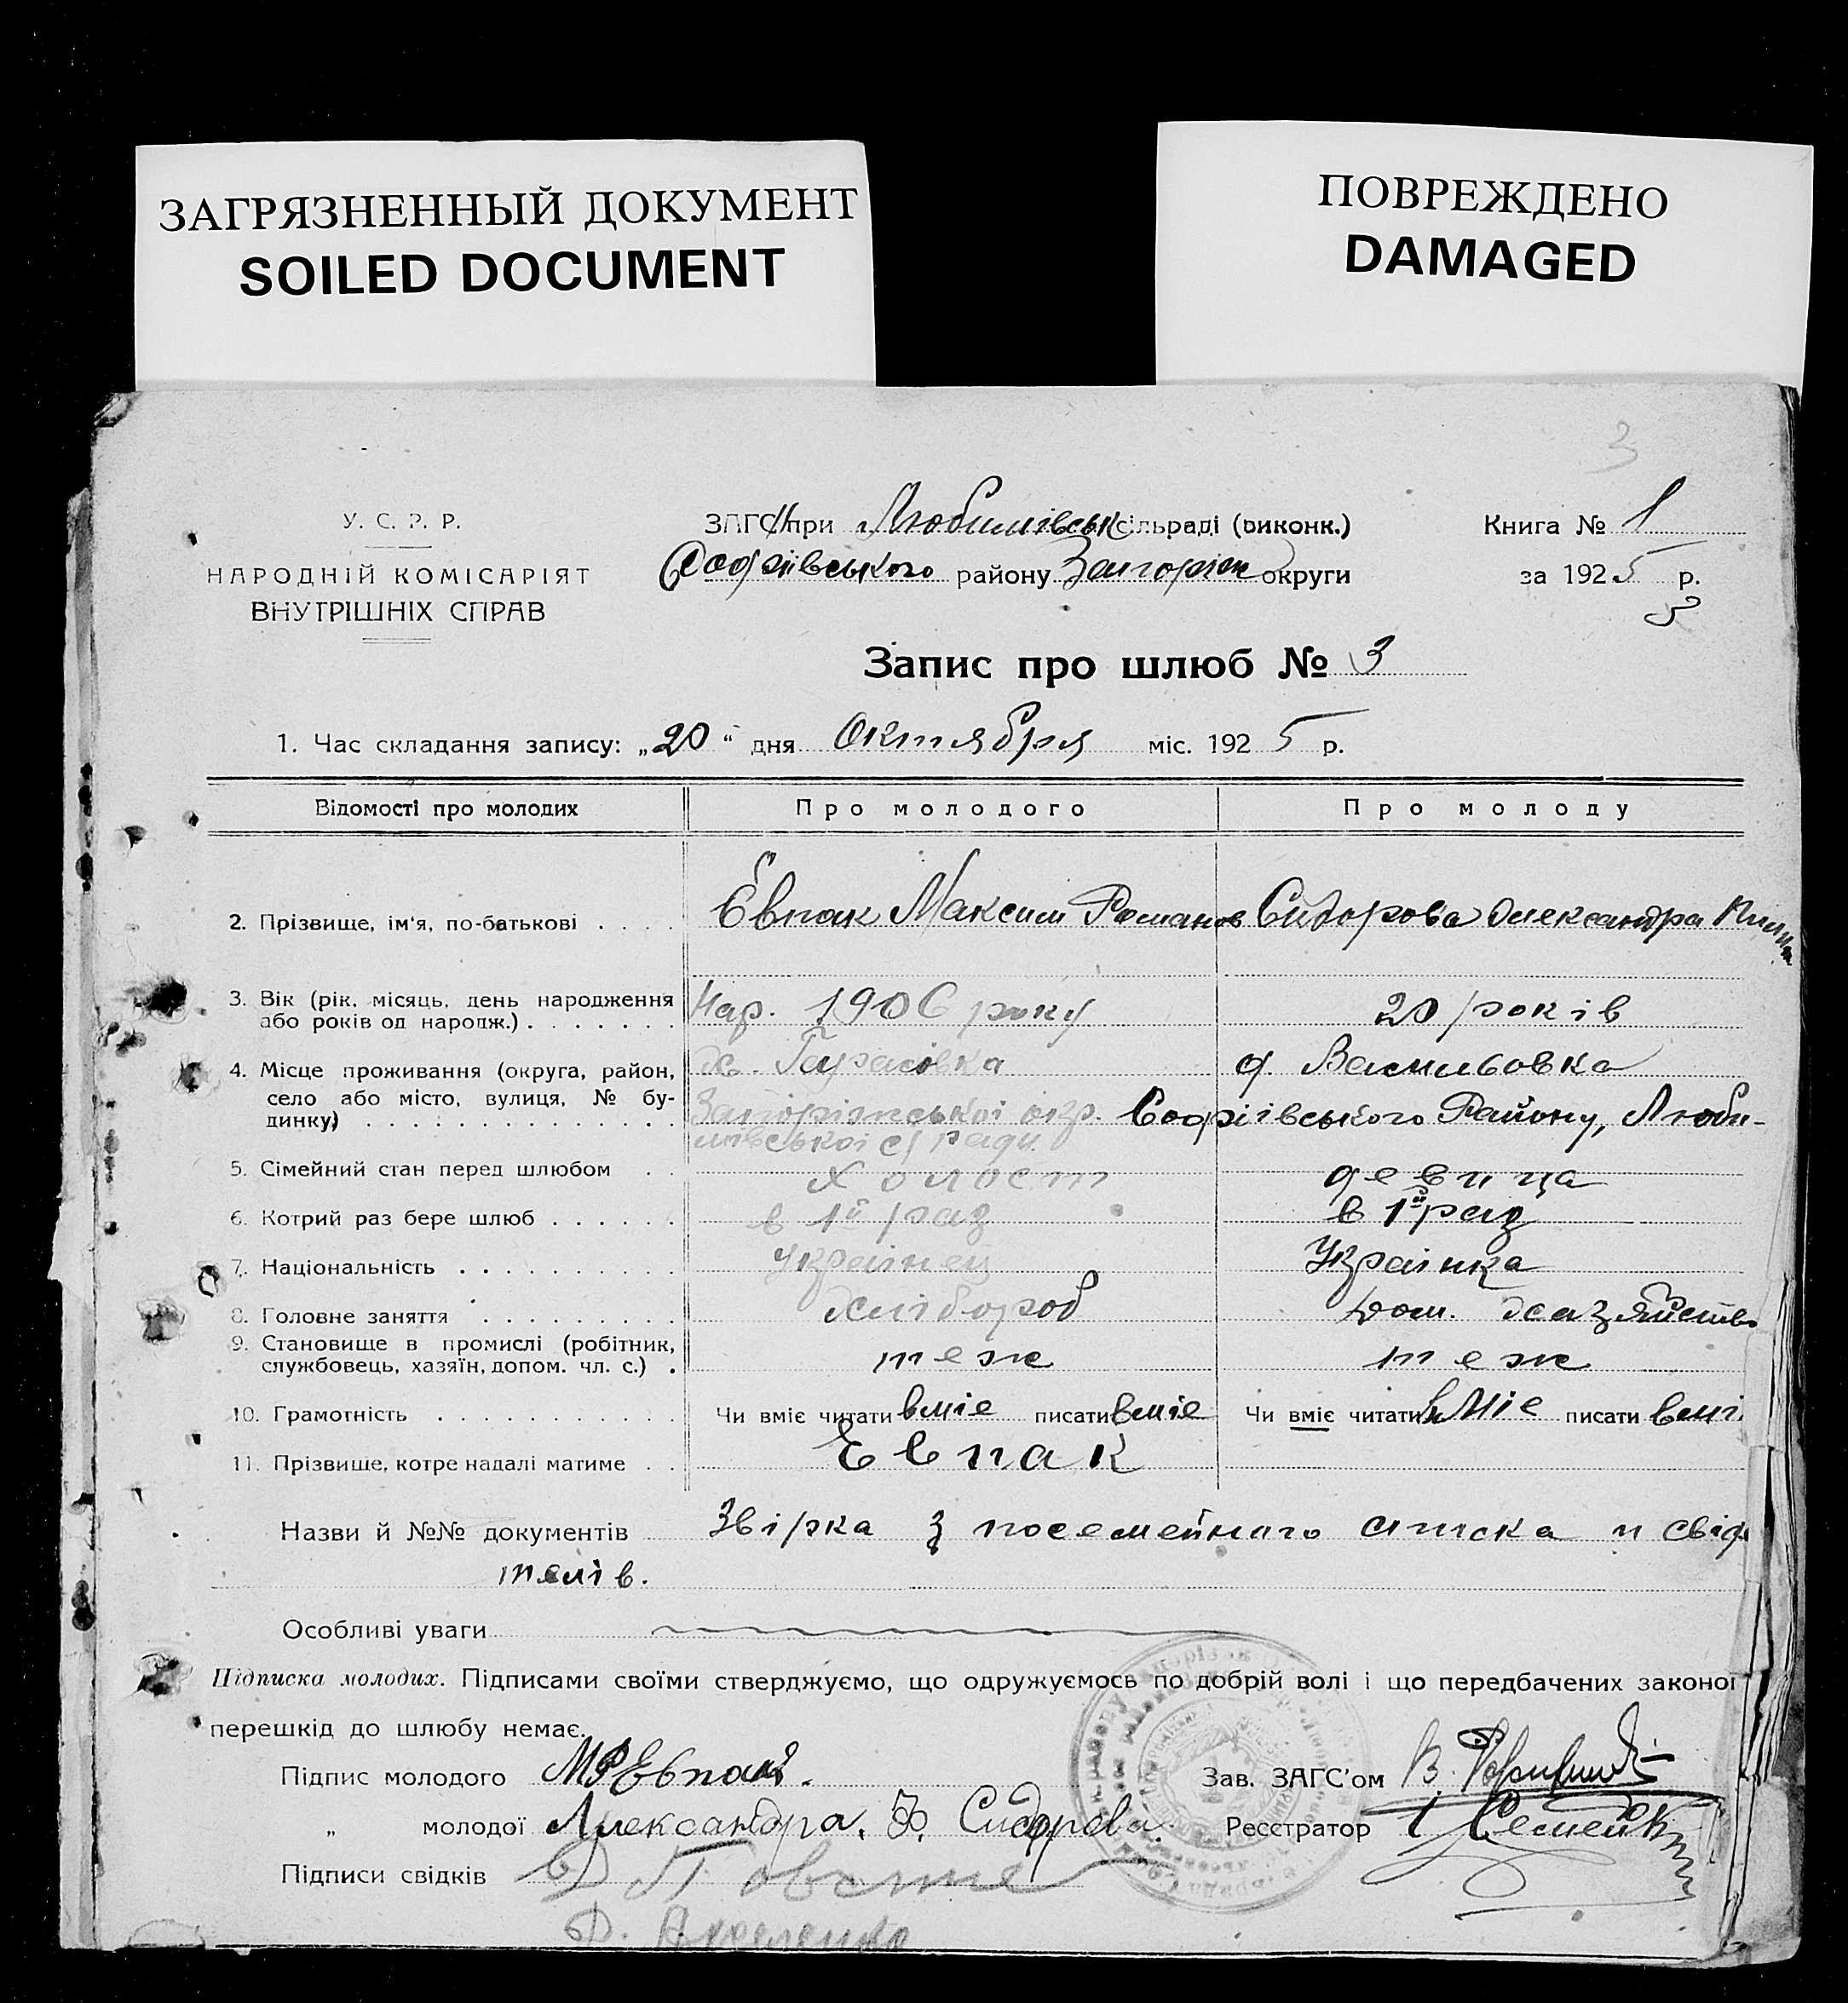 ЗАГРЯЗНЕННЫЙ ДОКУМЕНТ
SOILED DOCUMENT
ПОВРЕЖДЕНО
DAMAGED
3
У. С. Р. Р.
НАРОДНІЙ КОМІСАРІЯТ
ВНУТРІШНІХ СПРАВ
ЗАГС при Любимівськ сільраді (виконк.)
Софіївського району Запоріж округи
Книга № 1
за 1925 р.
3
Запис про шлюб № 3
1. Час складання запису: „20“ дня Октября міс. 1925 р.
Відомості про молодих Про молодого Про молоду
2. Прізвище, ім'я, по-батькові . . . . Євпак Максим Романов Сидорова Олександра
3. Вік (рік, місяць, день народження Нар. 1906 року 20 років
або років од народж.) . . . . . . .
4. Місце проживання (округа, район, х. Тарасівка д. Васильовка
село або місто, вулиця, № бу- Запоріжської окр. Софіївського Району, Люби-
динку) . . . . . . . . . . . . . . мівської с/ради
5. Сімейний стан перед шлюбом . . холост девица
6. Котрий раз бере шлюб . . . . . . в 1й раз в 1й раз
7. Національність . . . . . . . . . Українец Українка
8. Головне заняття . . . . . . . . . хлібороб дом. хазяйство
9. Становище в промислі (робітник, теж теж
службовець, хазяїн, допом. чл. с.) .
10. Грамотність . . . . . . . . . . . Чи вміє читати вміє писати вміє Чи вміє читати вміє писати вмі
11. Прізвише, котре надалі матиме . . Евпак
Назви й №№ документів Звірка з посемейного списка и свід
телів.
Особливі уваги
Підписка молодих. Підписами своїми стверджуємо, що одружуємось по добрій волі і що передбачених законої
перешкід до шлюбу немає.
Підпис молодого МРЕвпак. Зав. ЗАГС'ом В.
„ молодої Александра. Сидорова. Ресстратор
Підписи свідків